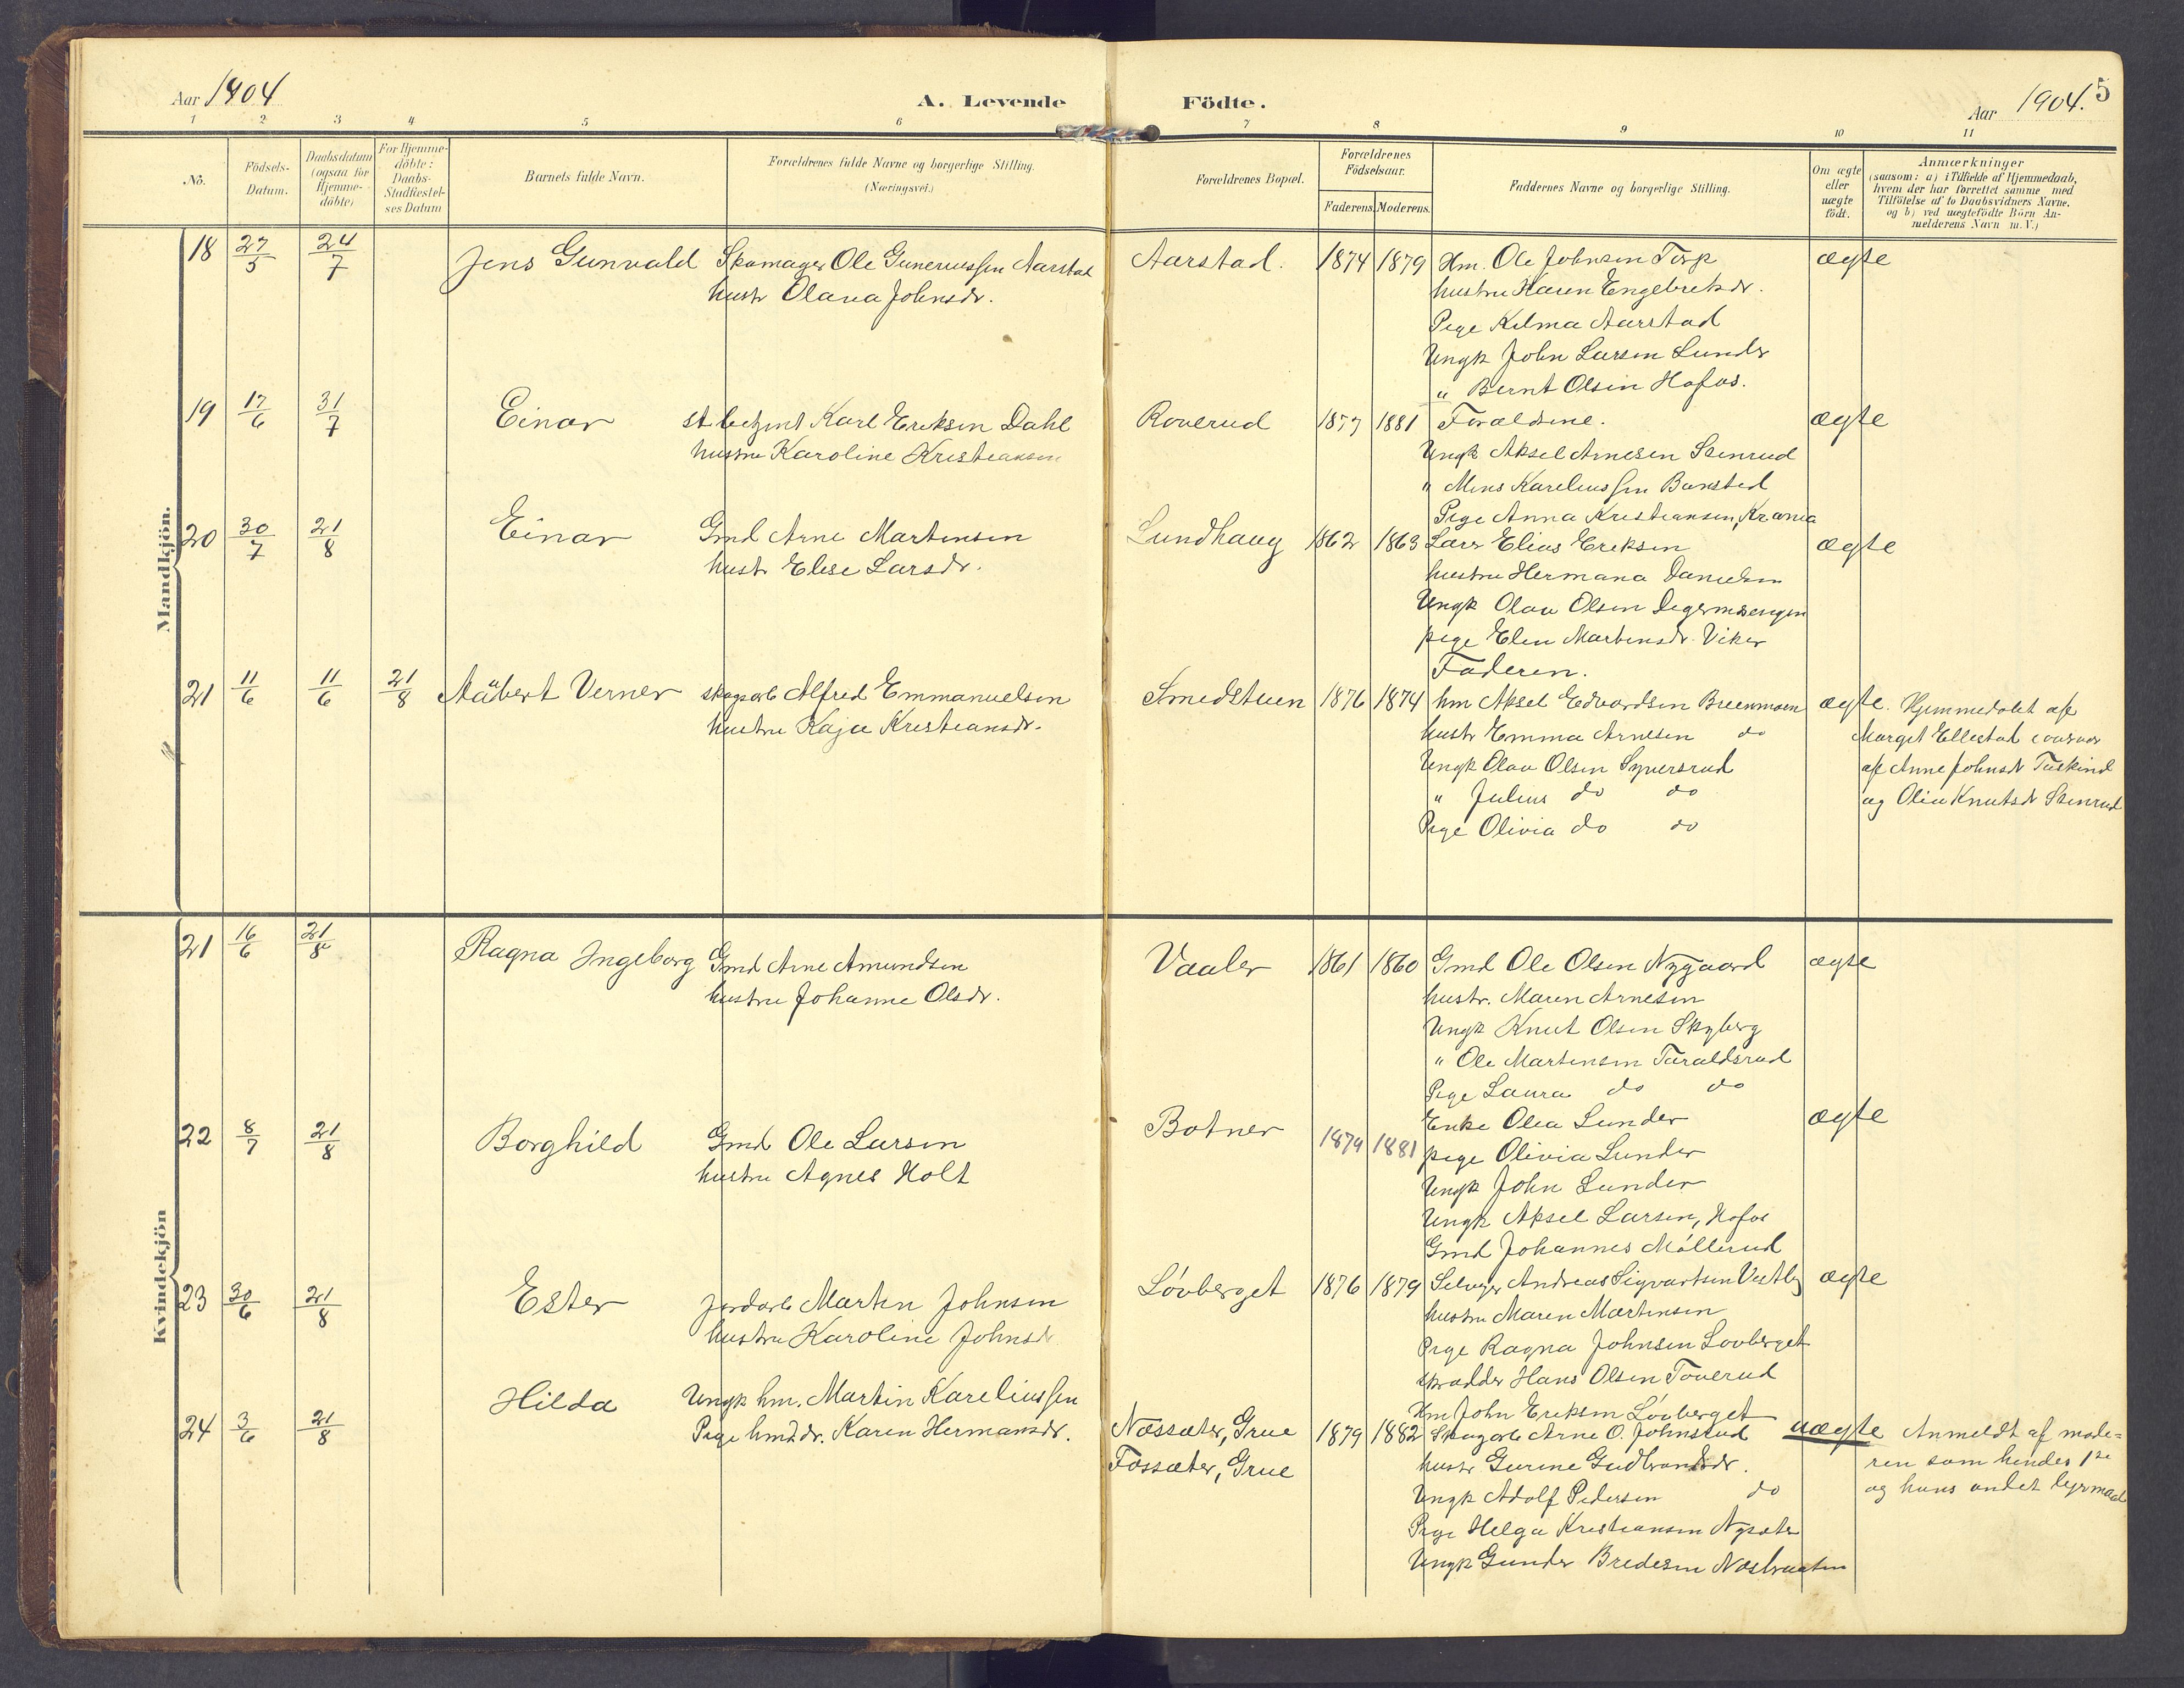 Aar 1904 A. Levende Födte. Aar 1904. 5
1 2 3 4 5 6 7 8 9 10 11
No.
Födsels-
Datum.
Daabsdatum
(ogsaa for
Hjemme-
döbte)
For Hjemme-
döbte:
Daabs-
Stadfiestel-
ses Datum
Barnets fulde Navn.
Forældrenes fulde Navne og borgerlige Stilling.
(Næringsvei.)
Forældrenes Bopæl.
Forældrenes
Födselsaar.
Faderens Moderens.
Faddernes Navne og borgerlige Stilling.
Om ægte
eller
uægte
födt.
Anmærkninger
(saasom: a) i Tilfælde af Hjemmedaab,
hvem der har forrettet samme med
Tilföielse af to Daabsvidners Navne.
og b) ved uægtefödte Börn An-
melderens Navn m.V.)
Mandkjön.
18 27/5 24/7 Jens Gunvald Skomager Ole Guneriussen Aarstad Aarstad. 1874 1879 Hm. Ole Johnsen Torp ægte
hustr Olava Johnsdr. hustru Karen Engebretsdr.
Pige Kilma Aarstad
Ungk John Larsen Lunder
" Bernt Olsen Hofos.
19 17/6 31/7 Einar Karl Eriksen Dahl Roverud 1877 1881 Forældrene. ægte
hustru Karoline Kristiansen Ungk Aksel Arnesen Stenrud
" Mens Kareliussen Banstad
Pige Anna Kristiansen, Krania
20 30/7 21/8 Einar Gmd Arne Martinsen Lundhaug 1862 1863 Lars Elias Eriksen ægte
hustr Elise Larsdr. hustru Hermana Danielsen
Ungk Olav Olsen Digermosengen
pige Elen Martinsdr. Viker
Faderen.
21 11/6 11/6 21/8 Aäbert Verner skogarb Alfred Emmanuelsen Smedstuen 1876 1874 hm Aksel Edvardsen Breenmoen ægte. Hjemmedøbt af
hustru Kaja Kristiansdr. hustr Emma Arnesen do Marget Ellestad
Ungk Olav Olsen Syversrud af Anne Johnsdr Tuskind
" Julius do do og Olia Knutsdr Stenrud
Pige Olivia do do
Kvindekjön
21 16/6 21/8 Ragna Ingeborg Gmd Arne Amundsen Vaaler 1861 1860 Gmd Ole Olsen Nygaard ægte
hustru Johanne Olsdr. hustr. Maren Arnesen
Ungk Knut Olsen Skyberg
" Ole Martinsen Taraldsrud
Pige Laura do do
22 8/7 21/8 Borghild Gmd Ole Larsen Botner 1879 1881 Enke Olea Lunder ægte
hustru Agnes Holt pige Olivia Lunder
Ungk John Lunder
Ungk Aksel Larsen, Hofos
Gmd Johannes Møllerud
23 30/6 21/8 Ester Jordarb Martin Johnsen Løvberget 1876 1879 Selvejer Andreas Sigvartsen Vestby ægte
hustru Karoline Johnsdr hustru Maren Martinsen
Pige Ragna Johnsen Lovberget
skrædder Hans Olsen Toverud
Hm John Eriksen Lövberget
24 3/6 21/8 Hilda Ungk hm. Martin Kareliussen Næssæter, Grue 1879 1882 Skogarb Arne O. Johnstud uægte Anmeldt af mode=
Pige hmd.dr. Karen Hermansdr. Fossæter, Grue hustr Gurine Gudbrandsdr. ren som hendes 1ste
Ungk Adolf Pedersen do og hans andet leiermaal
Pige Helga Kristiansen Nysæter
Ungk Gunder Bredesen Næsbraaten